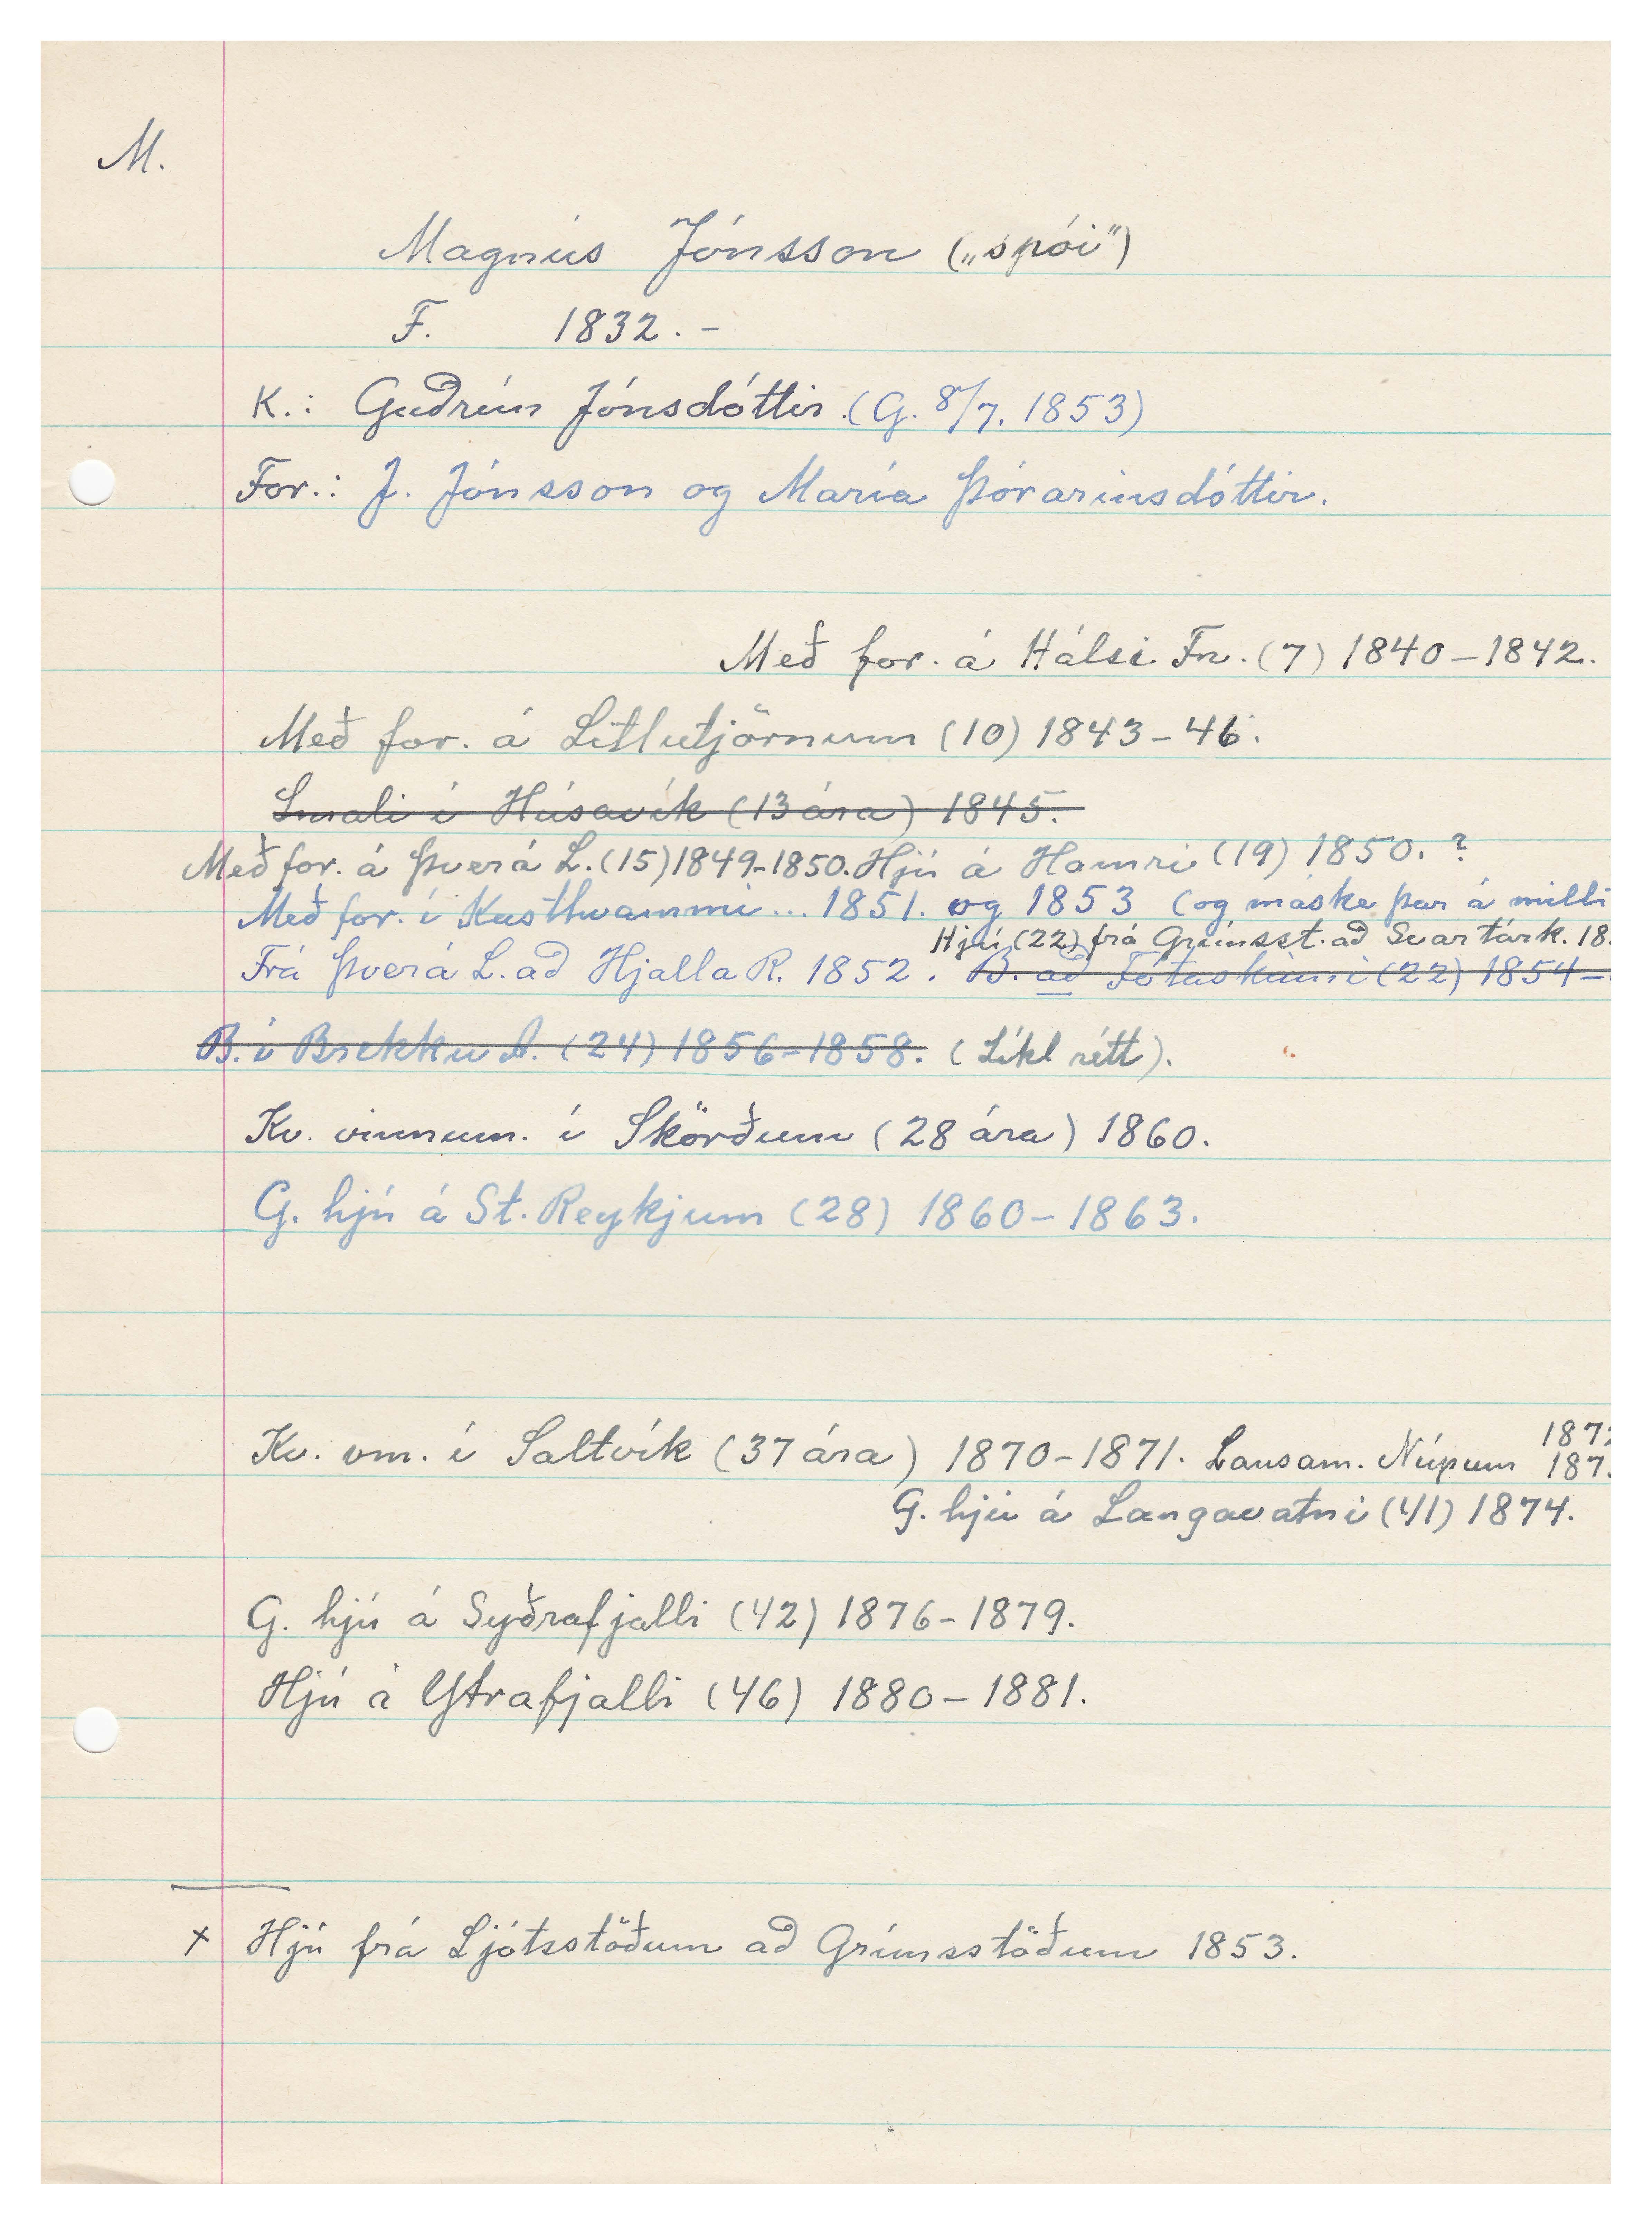 M.
Magnús Jónsson („spói")
F. 1832. -
K.: Guðrún Jónsdóttir. (G. 8/7. 1853)
For.: J. Jónsson og María Þórarinsdóttir.
Með for. á Hálsi Fn. (7) 1840-1842.
Með for. á Litlutjörnum (10) 1843-46.
Smali í Húsavík (13 ára) 1845.
Með for. á Þverá L. (15) 1849-1850. Hjú á Hamri (19) 1850. ?
Með for. í Kasthvammi... 1851. og 1853 (og máske þar á milli
Hjú (22) frá Grímsst. að Svartárk. 18
Frá Þverá L. að Hjalla R. 1852. B. að Fótaskinni (22) 1854-
B. í Brekku A. (24) 1856-1858. (Líkl rétt).
Kv. vinnum. í Skörðum (28 ára) 1860.
G. hjú á St. Reykjum (28) 1860-1863.
Kv. vm. í Saltvík (37 ára) 1870-1871. Lausam. Núpum 187
G. hjú á Langavatni (41) 1874.
G. hjú á Syðrafjalli (42) 1876-1879.
Hjú á Ytrafjalli (46) 1880-1881.
x Hjú frá Ljótsstöðum að Grímsstöðum 1853.